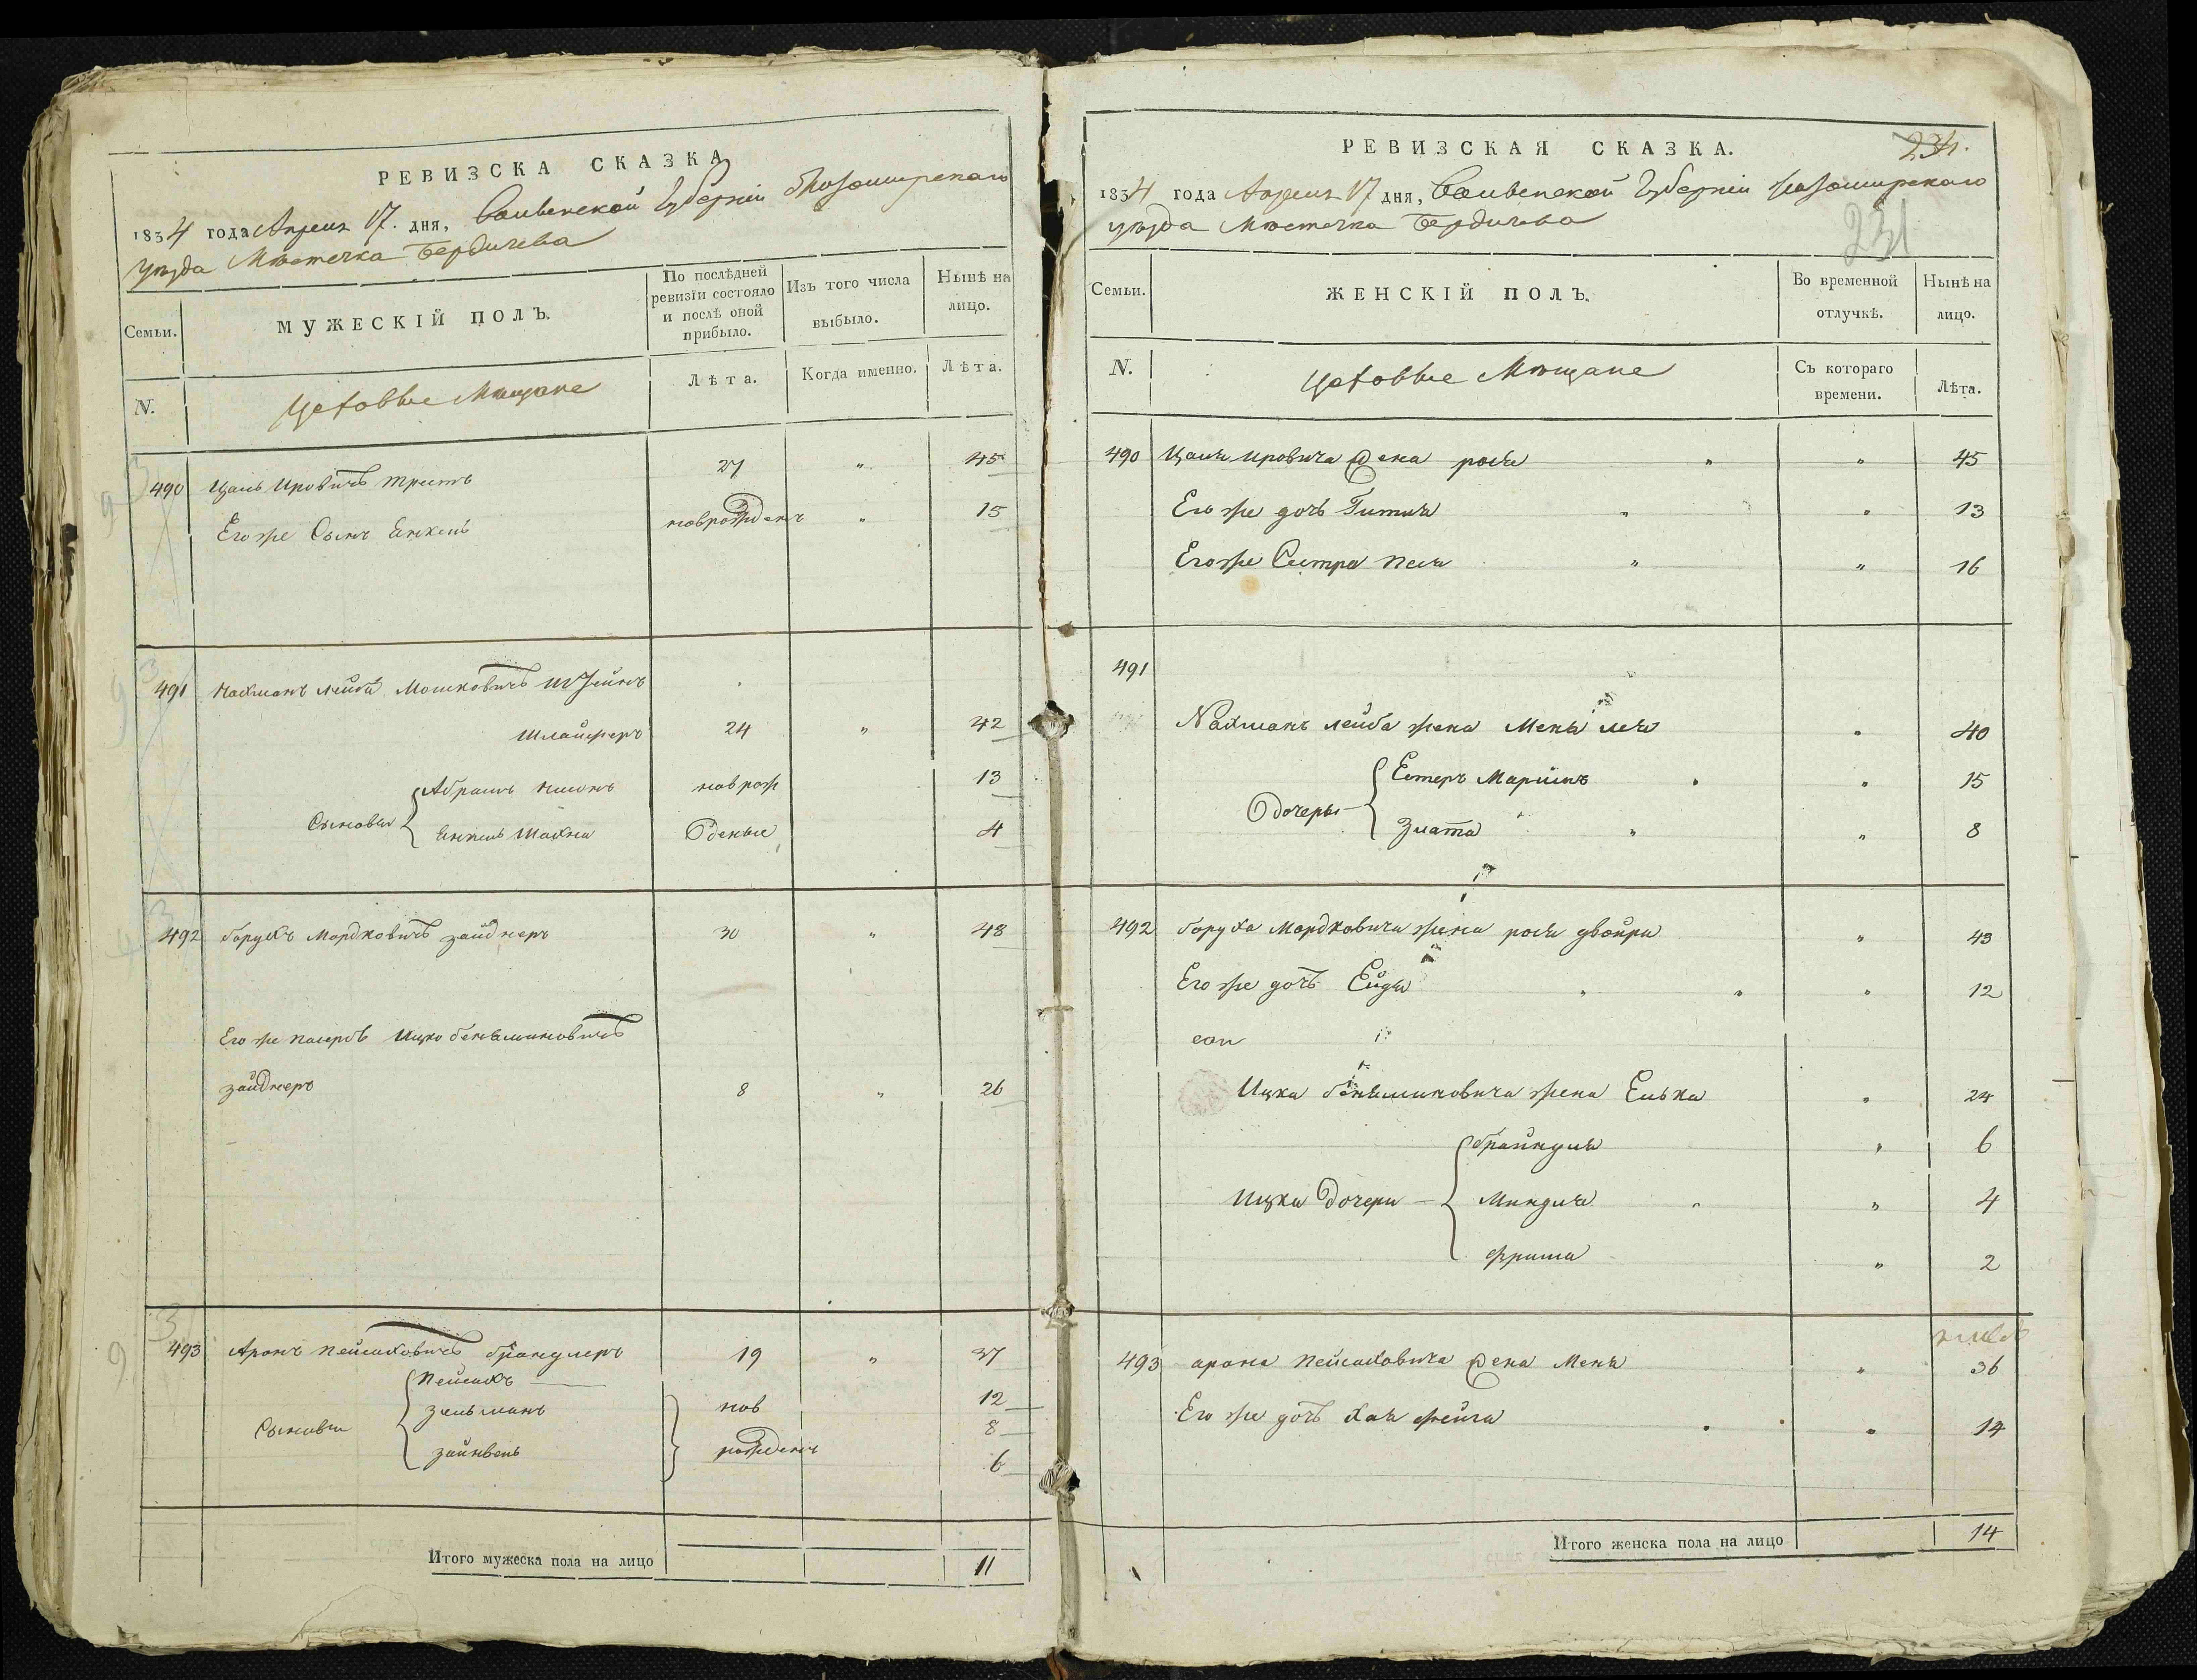 РЕВИЗСКА СКАЗКА
1834 года Апреля 17. дня, Волынской Губерніи Житомирскаго
уѣзда Мѣстечка Бердичева
Семьи.
МУЖЕСКІЙ ПОЛЪ.
По послѣдней ревизіи состояло и послѣ оной прибыло.
Изъ того числа выбыло.
Нынѣ на лицо.
N.
Цеховые Мѣщане
Лѣта.
Когда именно.
Лѣта.
490 Цаль Ировичъ 27 " 45
Его же Сынъ Янкель новорожденъ " 15
491 Нахманъ Лейба Мошковичъ
Шлайферъ 24 " 42
Сыновья
Абрамъ новрож 13
Янкель Шахна деные 4
492 Борухъ Мордковичъ Зайднеръ 30 " 48
Его же Ицко Беняминовичъ
Зайднеръ 8 " 26
493 Аронъ Пейсаховичъ 19 " 37
Сыновья
Пейсахъ 12
Зельманъ нов 8
Зайнвель рожденъ 6
Итого мужеска пола на лицо 11
РЕВИЗСКАЯ СКАЗКА.
234.
1834 года Апреля 17 дня, Волынской Губерніи Житомирскаго
231
уѣзда Мѣстечка Бердичева
Семьи.
ЖЕНСКІЙ ПОЛЪ.
Во временной отлучкѣ.
Нынѣ на лицо.
N.
Цеховые Мѣщане
Съ котораго времени.
Лѣта.
490 Цаля Ировича жена рося " " 45
Его же дочь Гитля " " 13
Его же Сестра Песя " " 16
491
Нахманъ лейба жена Меня лея " 40
Дочеры
Естеръ Маріимъ " " 15
Злата " " 8
492 боруха Мордковича жена рося двойра " 43
Его же дочь Ейдя " " " 12
Ицка беняминовича жена Елька " 24
Ицки Дочери
брайндля " 6
Миндля " " 4
фрима " 2
493 арона Пейсаховича жена Меня " 36
Его же дочь хая фейга " " 14
Итого женска пола на лицо 14